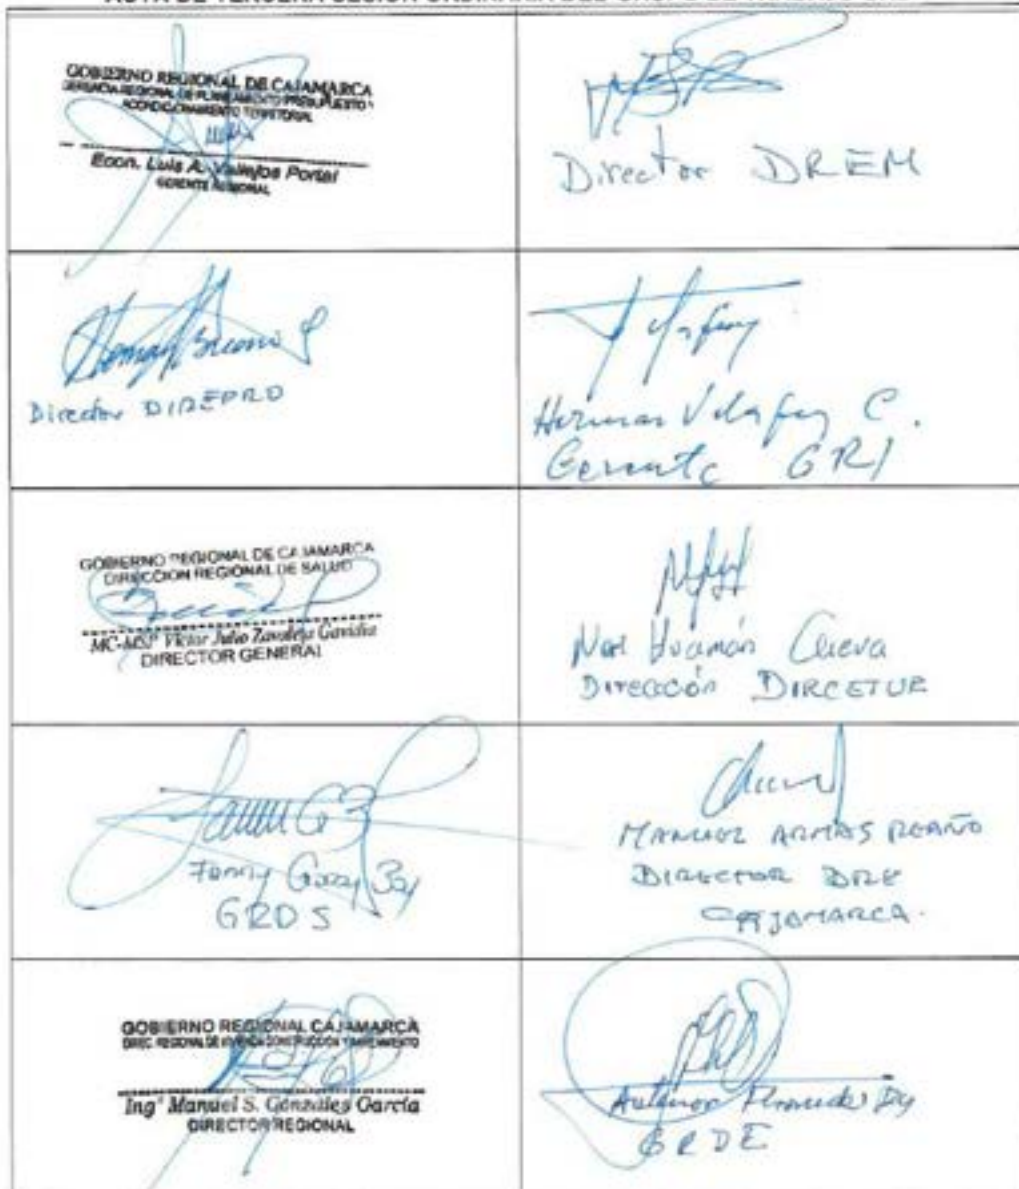 ACTA DE TERCERA SESIÓN ORDINARIA DEL GRUPO DE
GOBIERNO REGIONAL DE CAJAMARCA
GERENCIA REGIONAL DE PLANEAMIENTO PRESUPUESTO Y
ACONDICIONAMIENTO TERRITORIAL
Econ. Luis A. Vallejos Portal
GERENTE REGIONAL
Director DREM
Director DIREPRO
Herman C.
Gerente GRI
GOBIERNO REGIONAL DE CAJAMARCA
DIRECCION REGIONAL DE SALUD
MC-MSP Victor Julio Zavaleta Gavidia
DIRECTOR GENERAL
Huamán Cueva
Dirección DIRCETUR
GRDS
MANUEL ARMAS REAÑO
DIRECTOR DRE
CAJAMARCA.
GOBIERNO REGIONAL CAJAMARCA
DIREC. REGIONAL DE VIVIENDA CONSTRUCCION Y SANEAMIENTO
Ing° Manuel S. Gonzáles García
DIRECTOR REGIONAL
GRDE